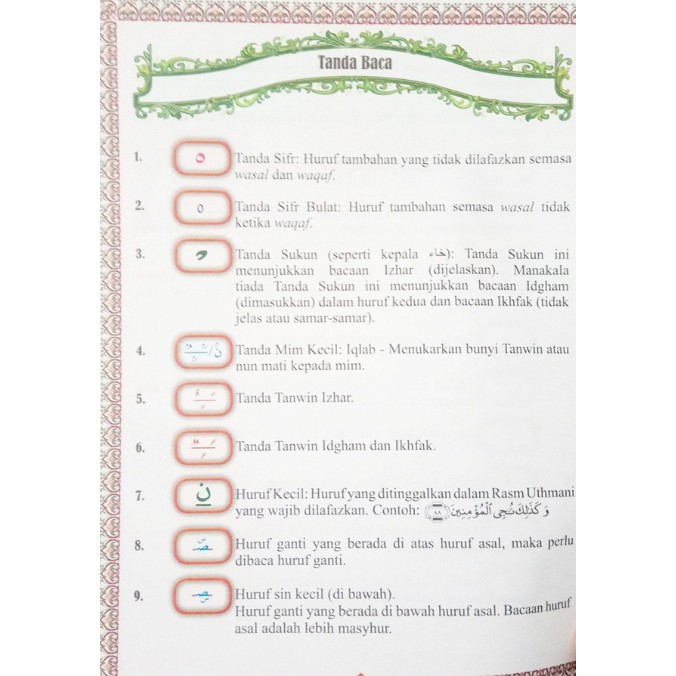 Tanda Baca
1. Tanda Sifr: Huruf tambahan yang tidak dilafazkan semasa
wasal dan waqaf.
2. Tanda Sifr Bulat: Huruf tambahan semasa wasal tidak
ketika waqaf.
3. Tanda Sukun (seperti kepala خاء): Tanda Sukun ini
menunjukkan bacaan Izhar (dijelaskan). Manakala
tiada Tanda Sukun ini menunjukkan bacaan Idgham
(dimasukkan) dalam huruf kedua dan bacaan Ikhfak (tidak
jelas atau samar-samar).
4. Tanda Mim Kecil: Iqlab - Menukarkan bunyi Tanwin atau
nun mati kepada mim.
5. Tanda Tanwin Izhar.
6. Tanda Tanwin Idgham dan Ikhfak.
7. Huruf Kecil: Huruf yang ditinggalkan dalam Rasm Uthmani
yang wajib dilafazkan. Contoh: وَكَذَٰلِكَ نُـۨجِى ٱلْمُؤْمِنِينَ ٨٨
8. Huruf ganti yang berada di atas huruf asal, maka perlu
dibaca huruf ganti.
9. Huruf sin kecil (di bawah).
Huruf ganti yang berada di bawah huruf asal. Bacaan huruf
asal adalah lebih masyhur.